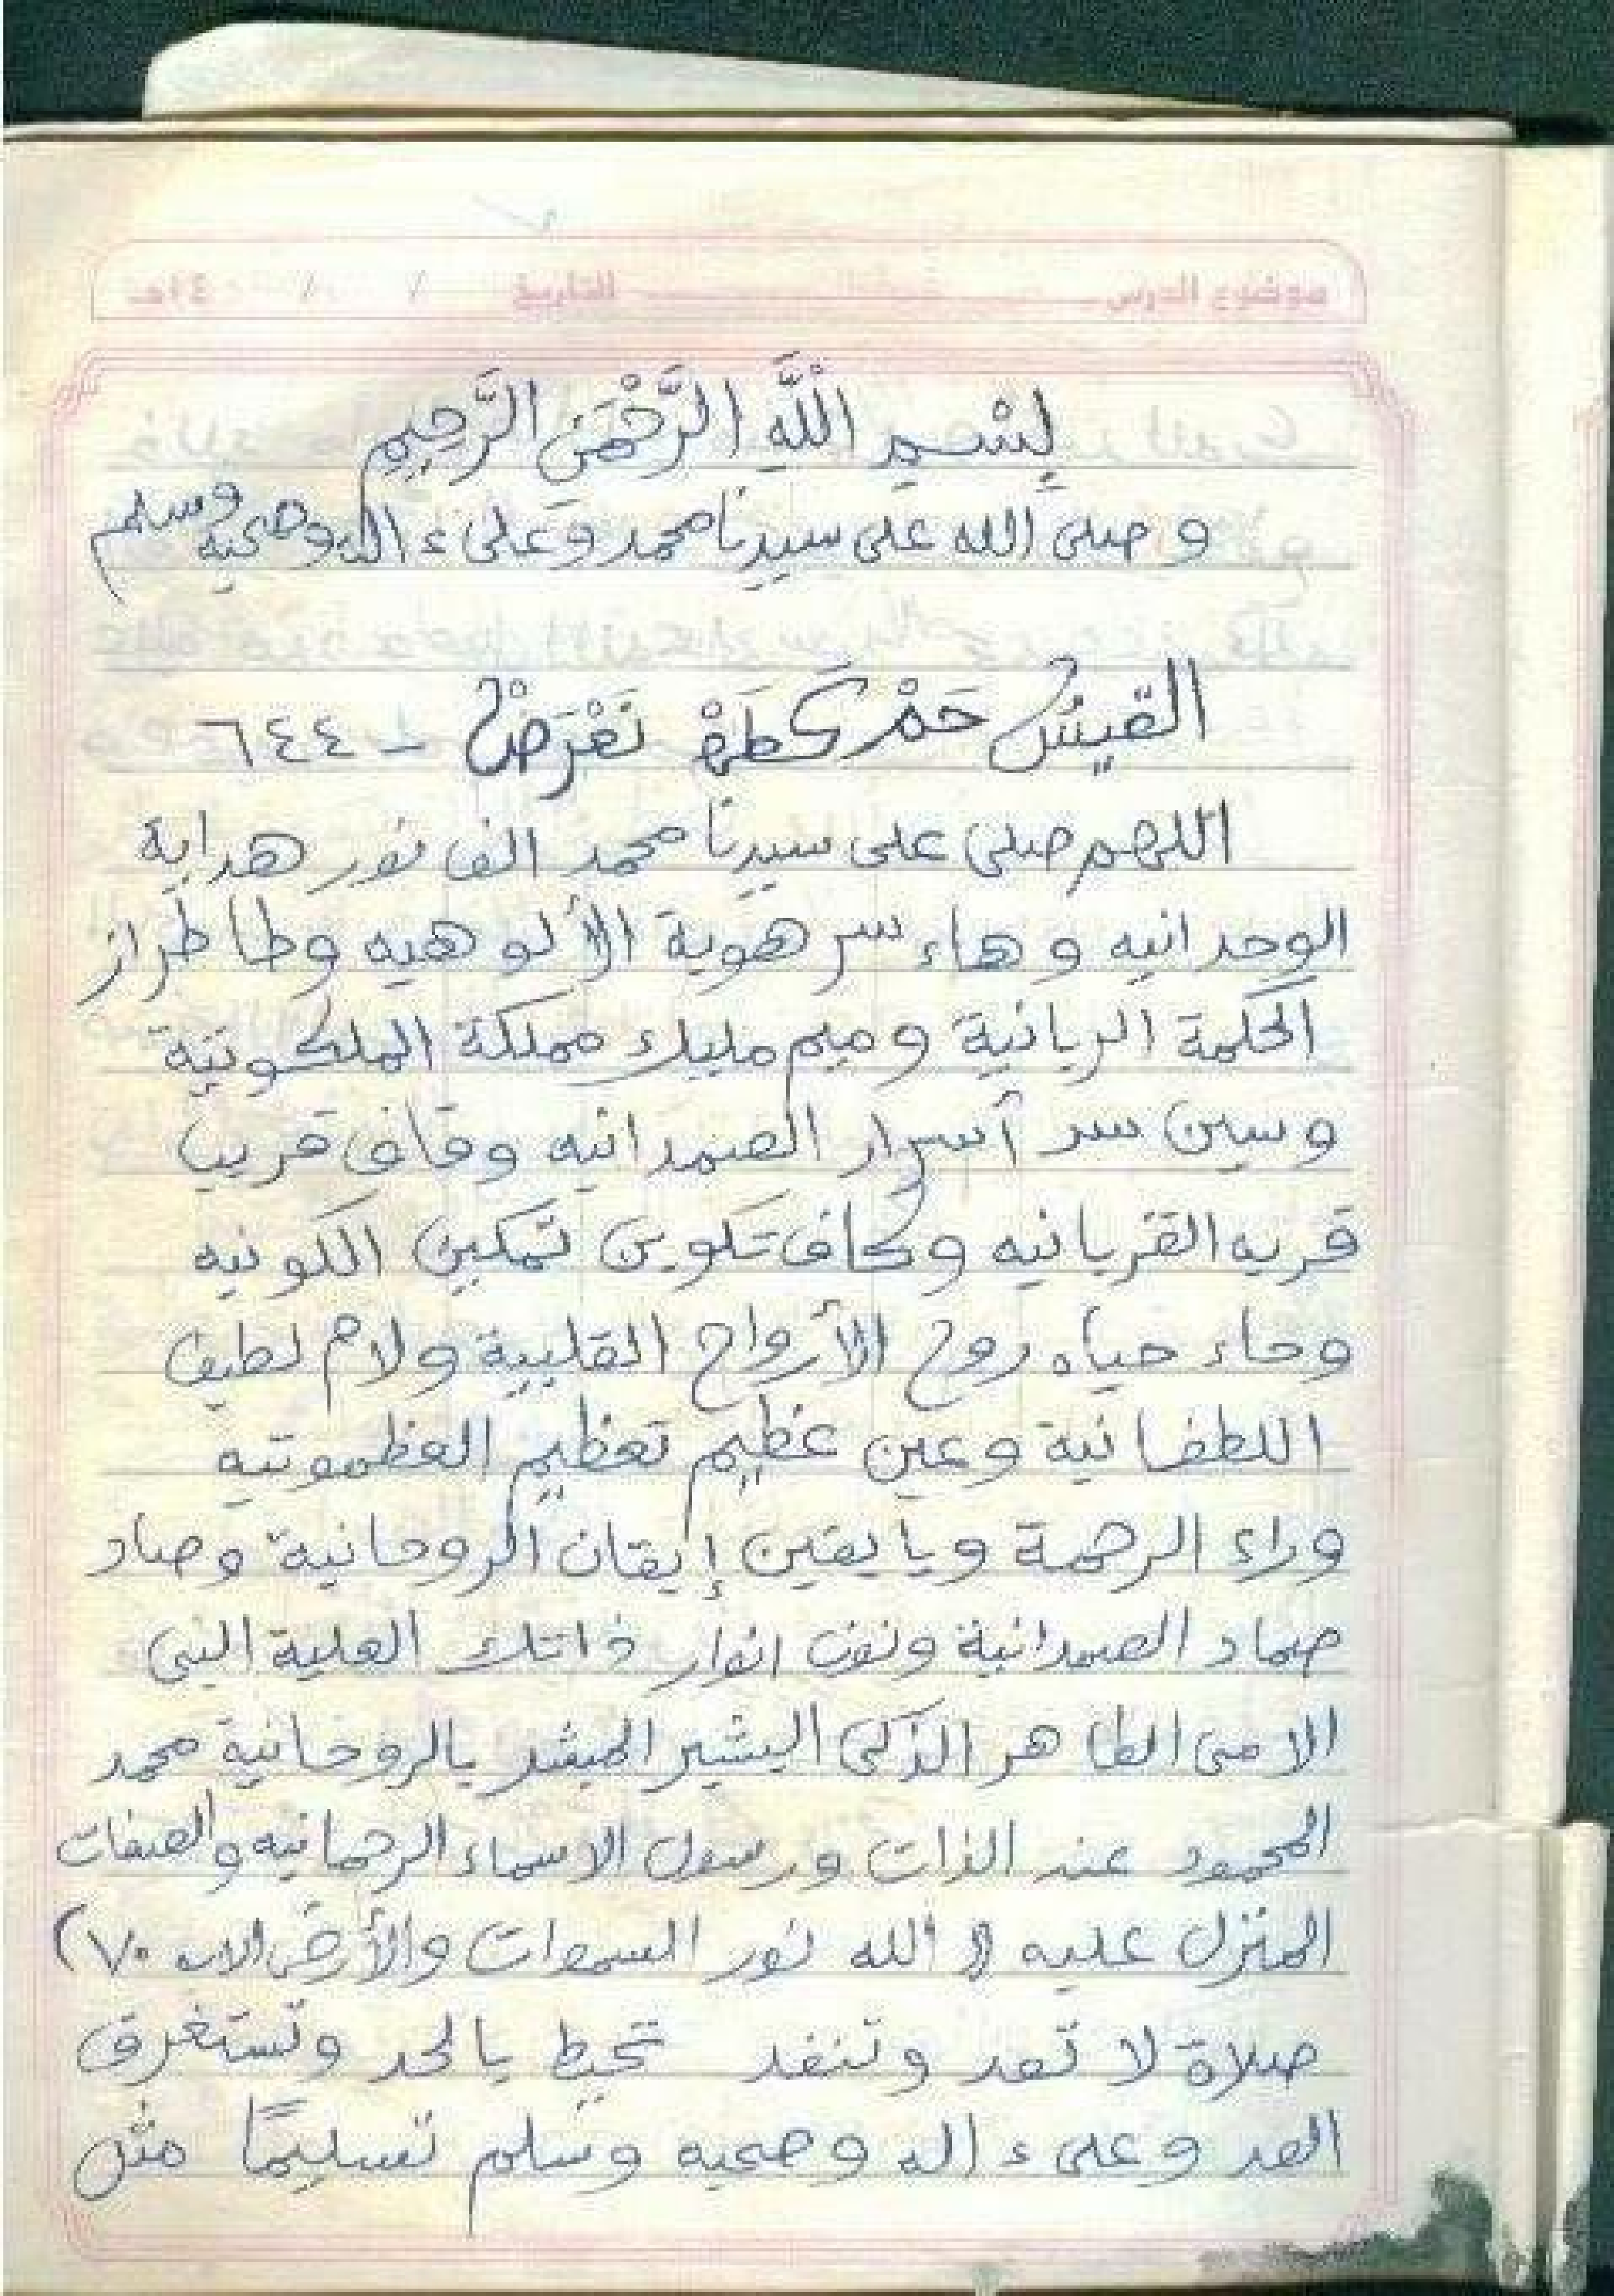 موضوع الدرس التاريخ / / ١٤هـ
بِسْمِ اللَّهِ الرَّحْمَنِ الرَّحِيمِ
وصلى الله على سيدنا محمد وعلى ءاله وصحبه وسلم
٦٤٤
اللهم صلى على سيدنا محمد الف نور هداية
الوحدانيه وهاء سر هوية الألوهيه وطا طراز
الحكمة الربانية وميم مليك مملكة الملكوتية
وسين سر أسرار الصمدانيه وقاف قريب
قربه القربانيه وكاف تكوين تمكين الكونيه
وحاء حياه روح الأرواح القلبية ولام لطيف
اللطفانية وعين عظيم تعظيم العظموتيه
وراء الرحمة ويا يقين إيقان الروحانية وصاد
صماد الصمدانية ونون انوار ذاتك العلية النبى
الامى الطاهر الذكى البشير المبشر بالروحانية محمد
المحمود عند الذات ورسول الاسماء الرحمانيه والصفات
المنزل عليه (( الله نور السموات والأرض ٧٠)
صلاة لا تعد وتنفد تحيط بالحد وتستغرق
العد وعلى ءاله وصحبه وسلم تسليمًا مثل